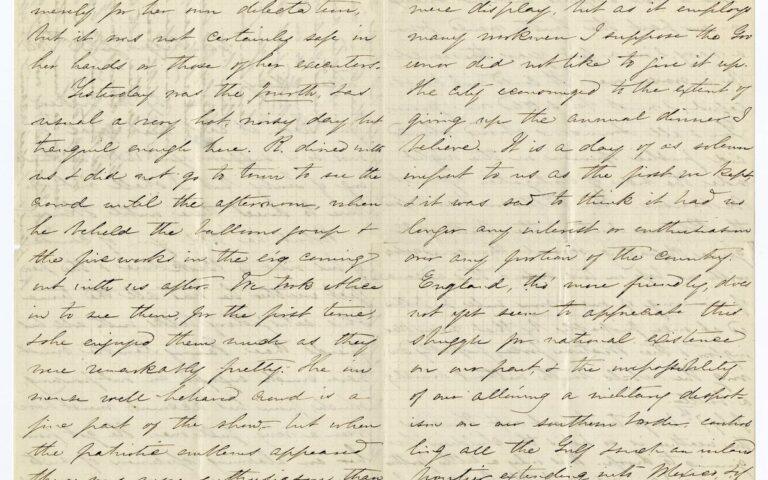 merely for her own delectation,
but it was not certainly safe in
her hands or those of her executors.
Yesterday was the fourth, & as
usual a very hot, noisy day but
tranquil enough here. R. dined with
us & did not go to town to see the
crowd until the afternoon, when
he beheld the balloons go up &
the fire works in the evg coming
out with us after. We took Alice
in to see them, for the first time,
& she enjoyed them much as they
were remarkably pretty. The im
mense well behaved crowd is a
fine part of the show - but when
the patriotic emblems appeared
there was more enthusiasm than
mere display, but as it employs
many workmen I suppose the Gov
ernor did not like to give it up.
The city economized to the extent of
giving up the annual dinner I
believe. It is a day of as solemn
import to us as the first we kept,
& it was sad to think it had no
longer any interest or enthusiasm
over any portion of the country.
England, tho' more friendly, does
not yet seem to appreciate this
struggle for national existence
on our part, & the impossibility
of our allowing a military despot
ism on our southern border control
ling all the Gulf such an inland
frontier extending into Mexico, if